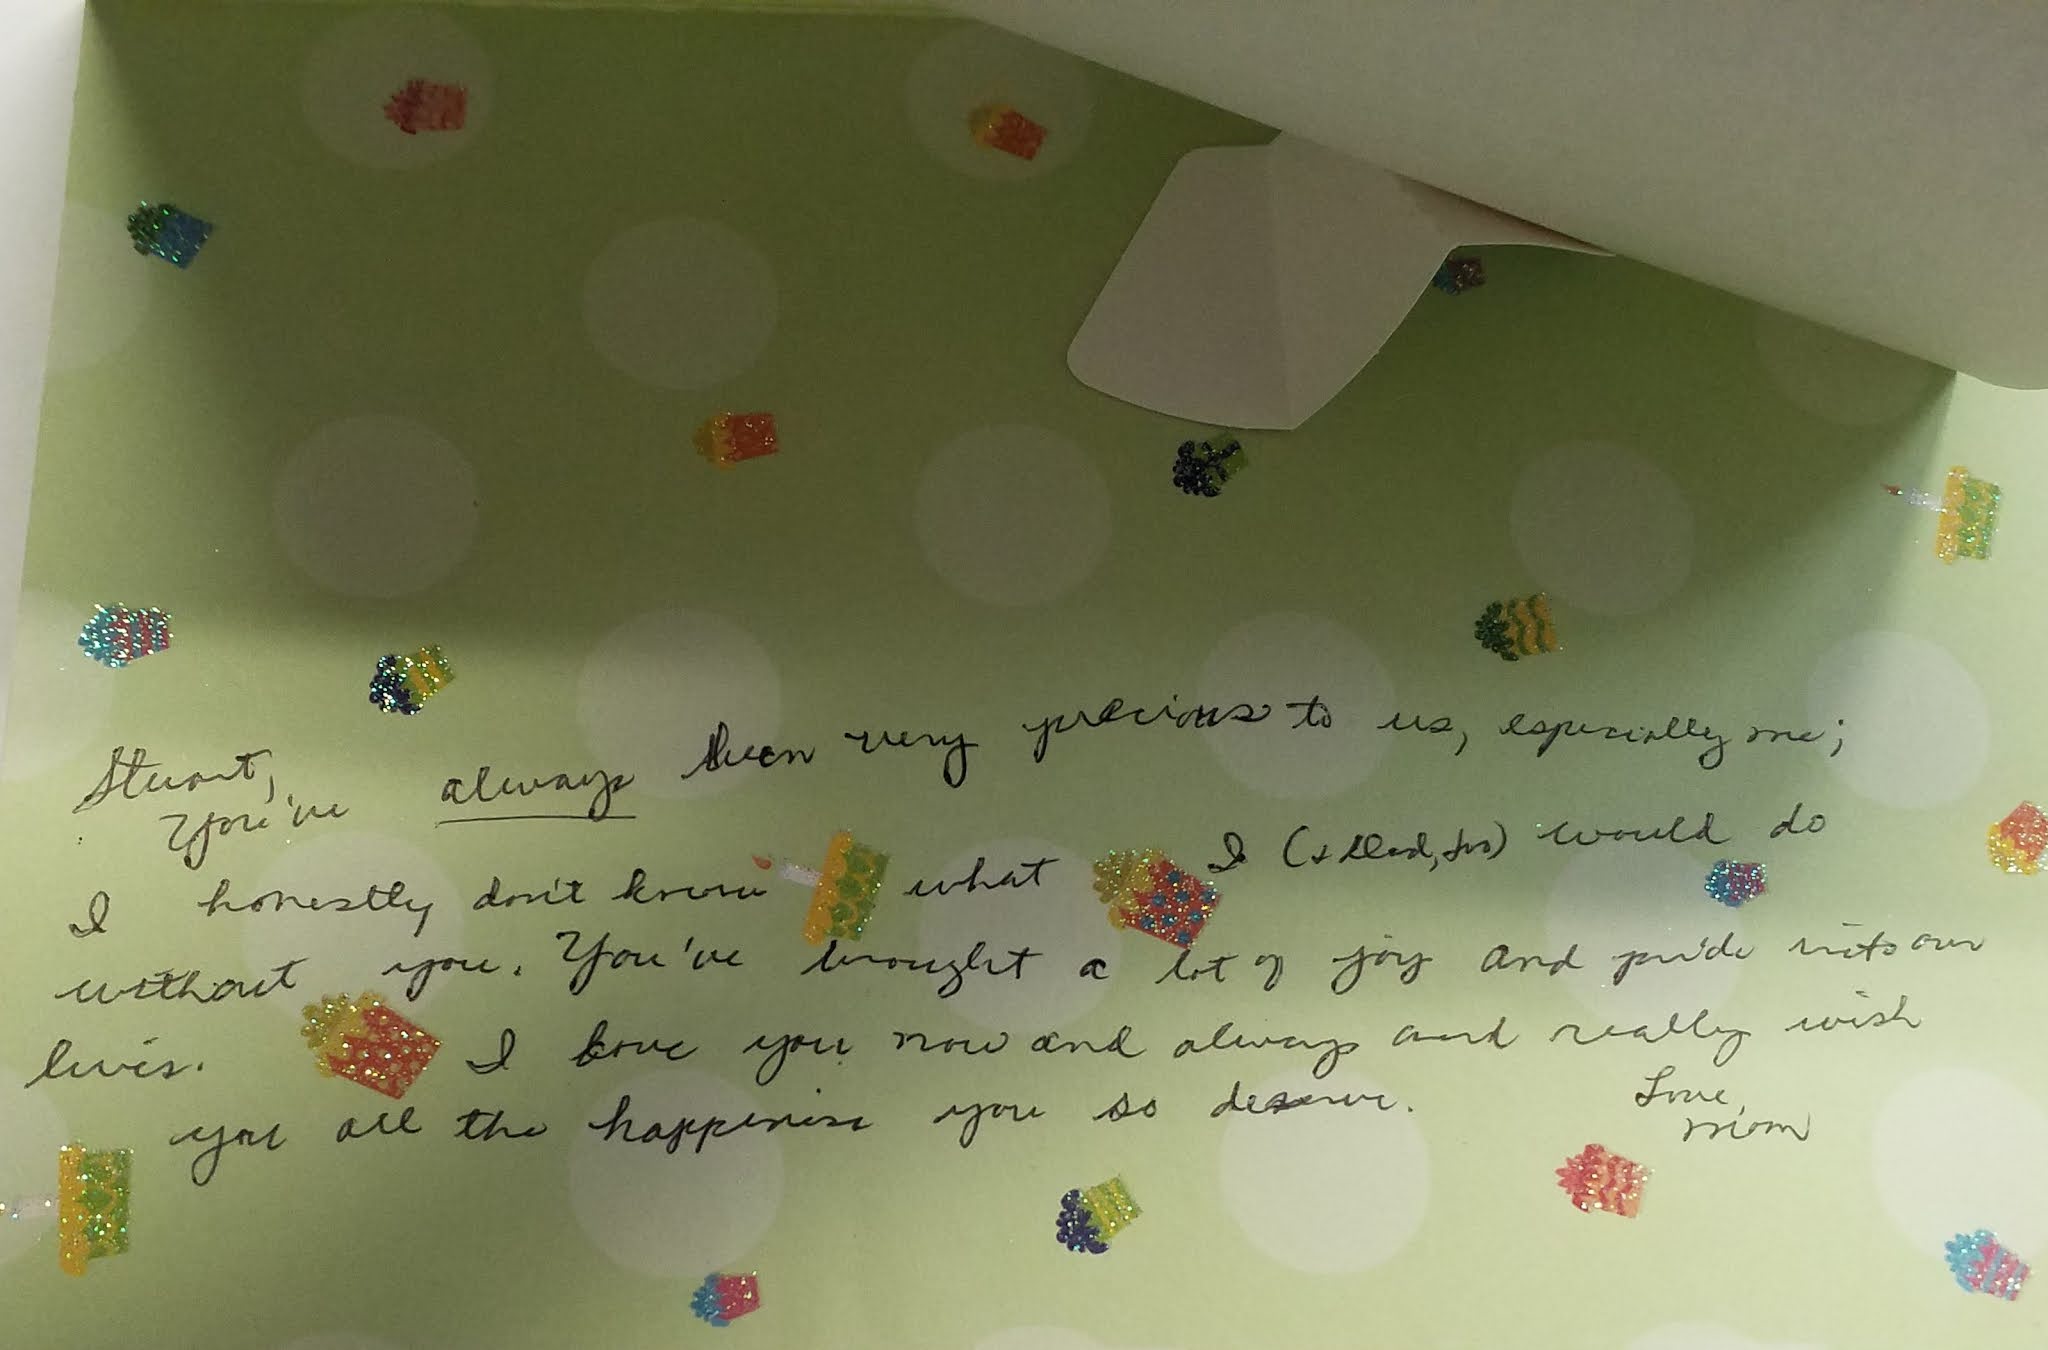 Stuart,
You've always been very precious to us, especially me;
I honestly don't know what I (+ Dad, too) would do
without you. You've brought a lot of joy and pride into our
lives. I love you now and always and really wish
you all the happiness you so deserve.
Love,
Mom